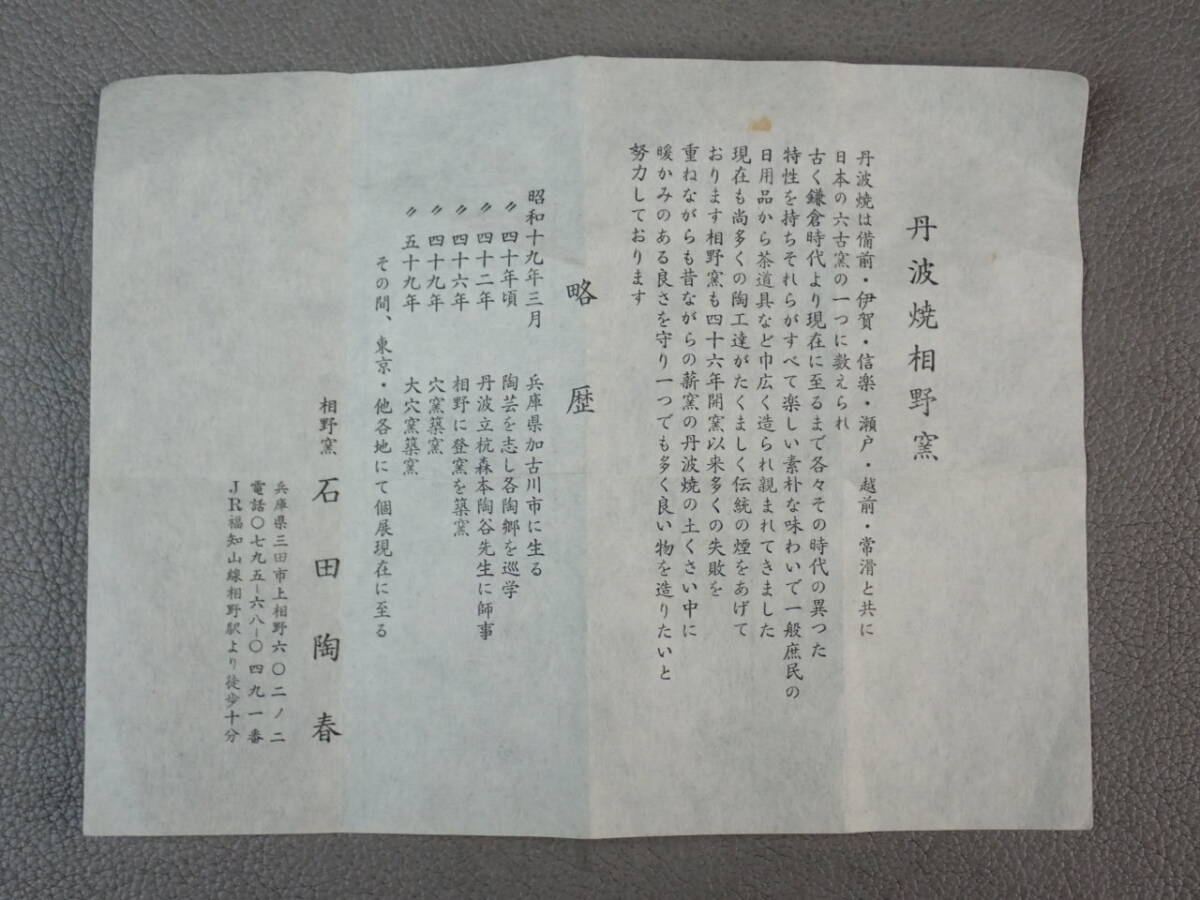 丹波焼相野窯
丹波焼は備前・伊賀・信楽・瀬戸・越前・常滑と共に
日本の六古窯の一つに数えられ
古く鎌倉時代より現在に至るまで各々その時代の異つた
特性を持ちそれらがすべて楽しい素朴な味わいで一般庶民の
日用品から茶道具など巾広く造られ親まれてきました
現在も尚多くの陶工達がたくましく伝統の煙をあげて
おります相野窯も四十六年開窯以来多くの失敗を
重ねながらも昔ながらの薪窯の丹波焼の土くさい中に
暖かみのある良さを守り一つでも多く良い物を造りたいと
努力しております
略歴
昭和十九年三月 兵庫県加古川市に生る
〃四十年頃 陶芸を志し各陶郷を巡学
〃四十二年 丹波立杭森本陶谷先生に師事
〃四十六年 相野に登窯を築窯
〃四十九年 穴窯築窯
〃五十九年 大穴窯築窯
その間、東京・他各地にて個展現在に至る
相野窯 石田陶春
兵庫県三田市上相野六〇二ノ二
電話〇七九五-六八-〇四九一番
JR福知山線相野駅より徒歩十分